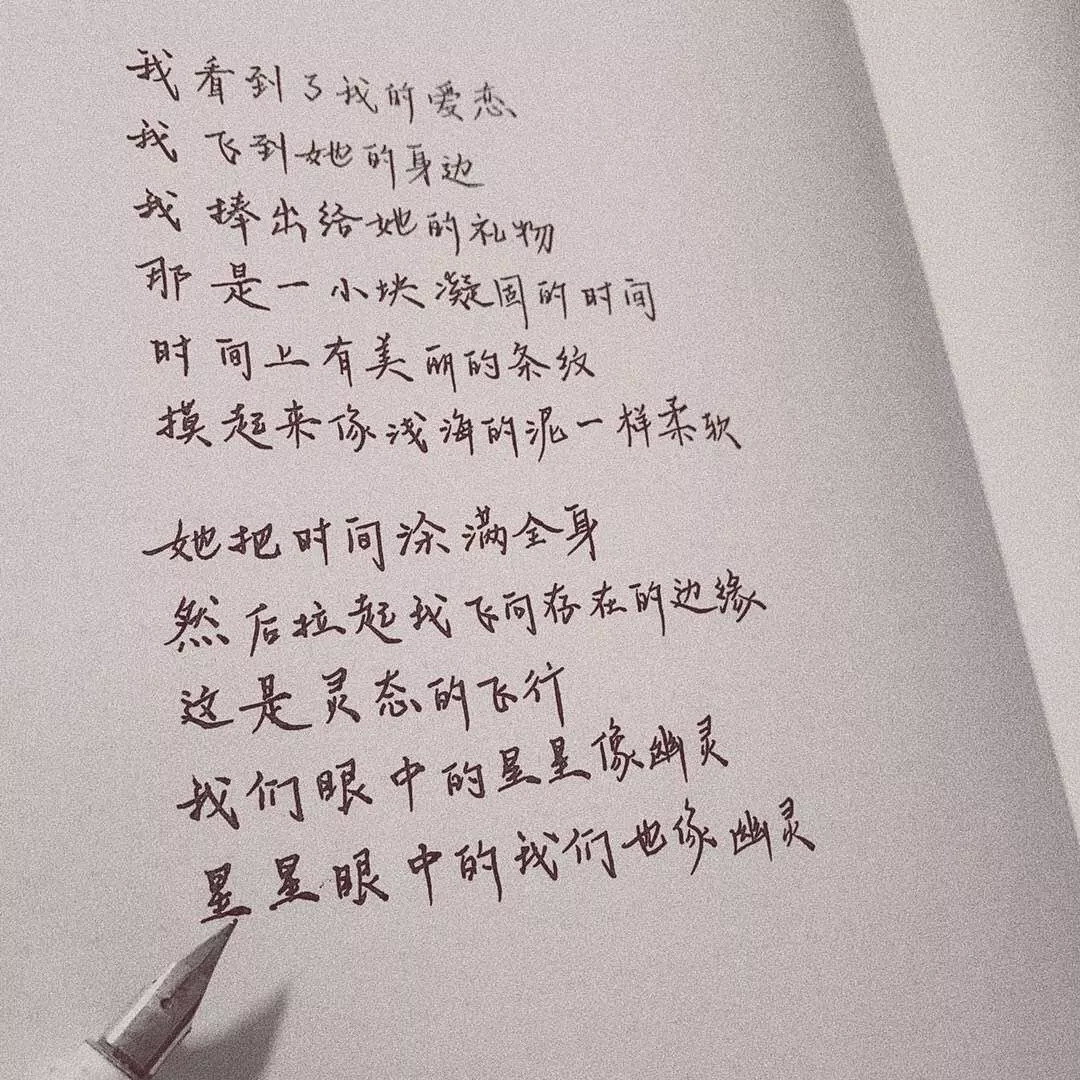 我看到了我的爱恋
我飞到她的身边
我捧出给她的礼物
那是一小块凝固的时间
时间上有美丽的条纹
摸起来像浅海的泥一样柔软
她把时间涂满全身
然后拉起我飞向存在的边缘
这是灵态的飞行
我们眼中的星星像幽灵
星星眼中的我们也像幽灵